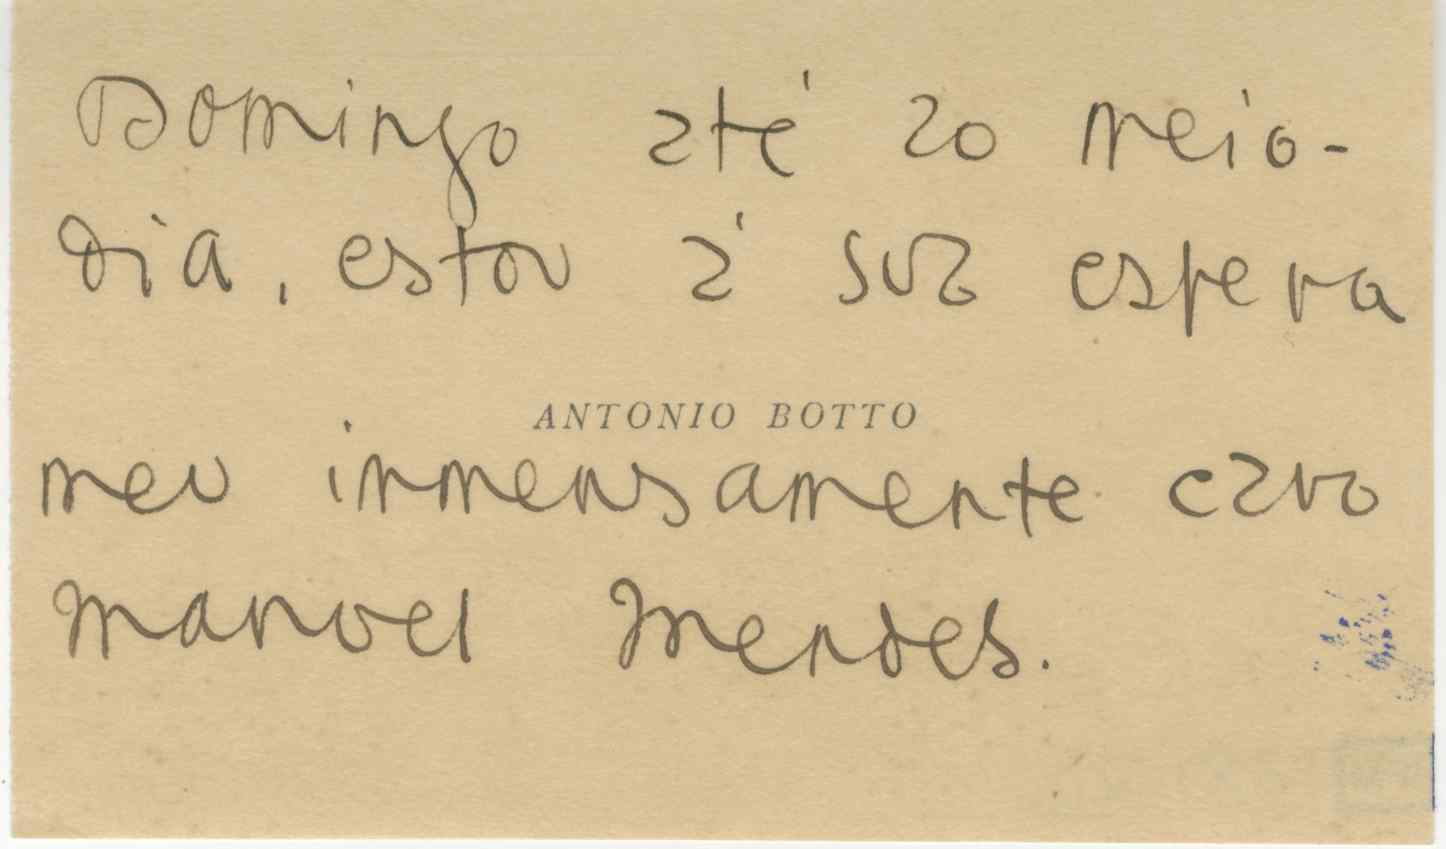 Domingo até ao meio-
dia, estou á sua espera
ANTONIO BOTTO
meu inmensamente caro
Manoel Mendes.